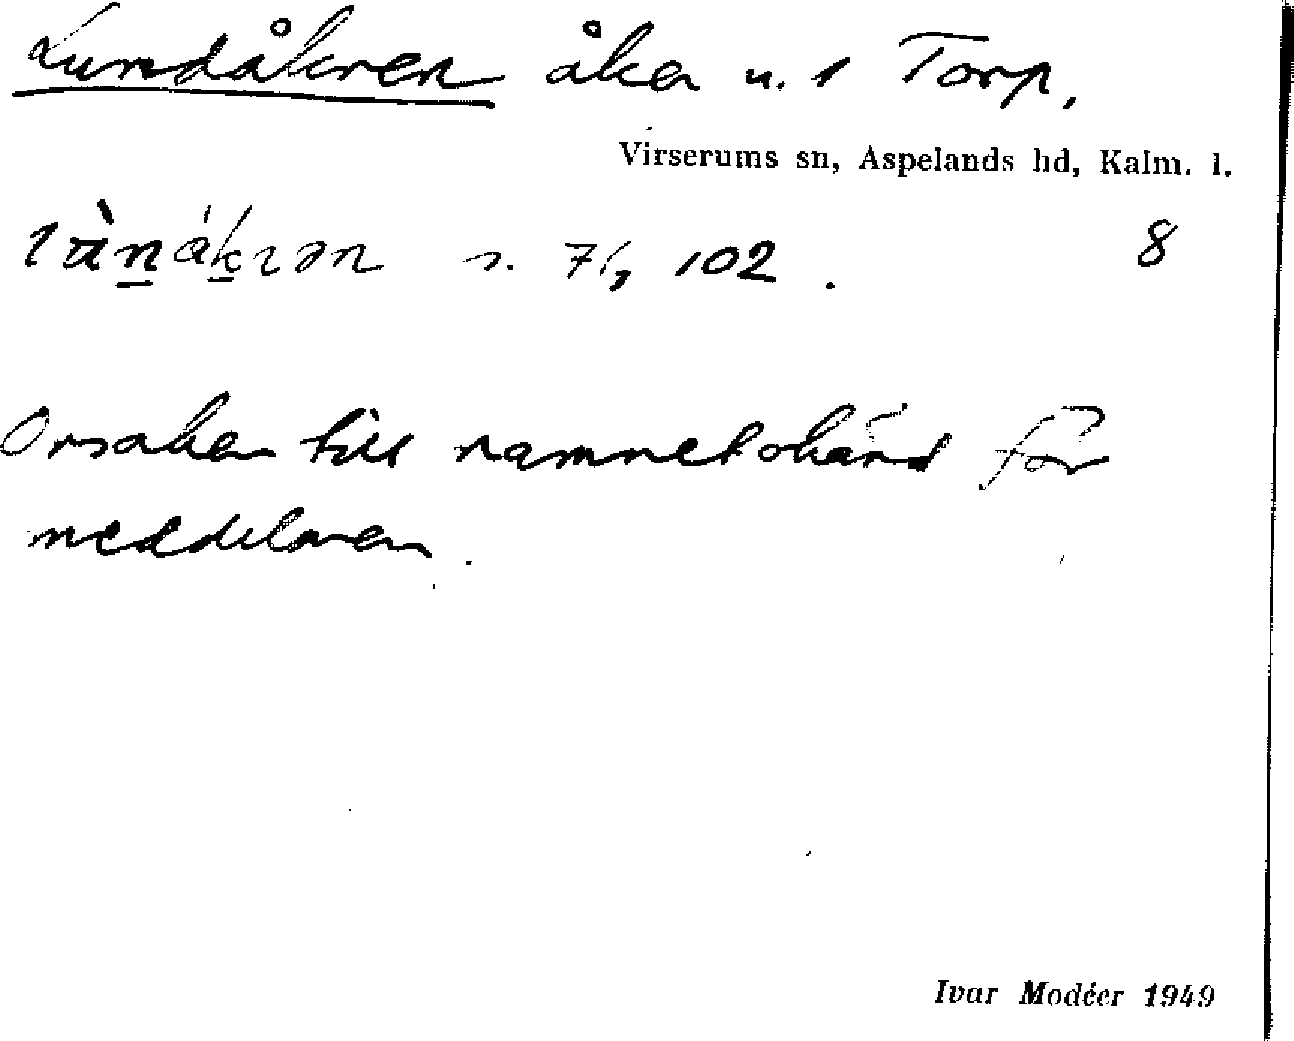 Lundåkren åker u. 1 Torp.
Virserums sn, Aspelands hd, Kalm. l.
102. 8
Orsaken till namnet okänd för
meddelaren.
Ivar Modéer 1949